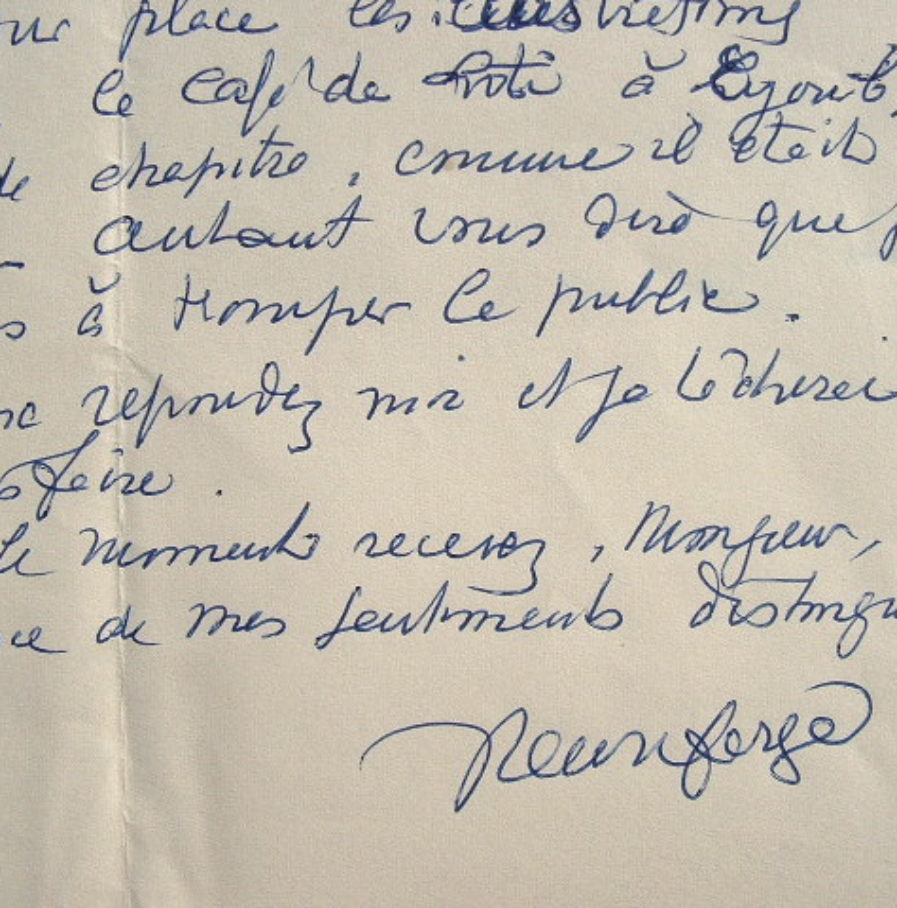 ur place les victimes
le café de Loti à Eyoub,
de chapitre, comme il était
autant vous dire que j
s à tromper le public.
nc repondez moi et je tâcherai
faire.
le moment recevez, Monsieur,
ce de mes sentiments distingu